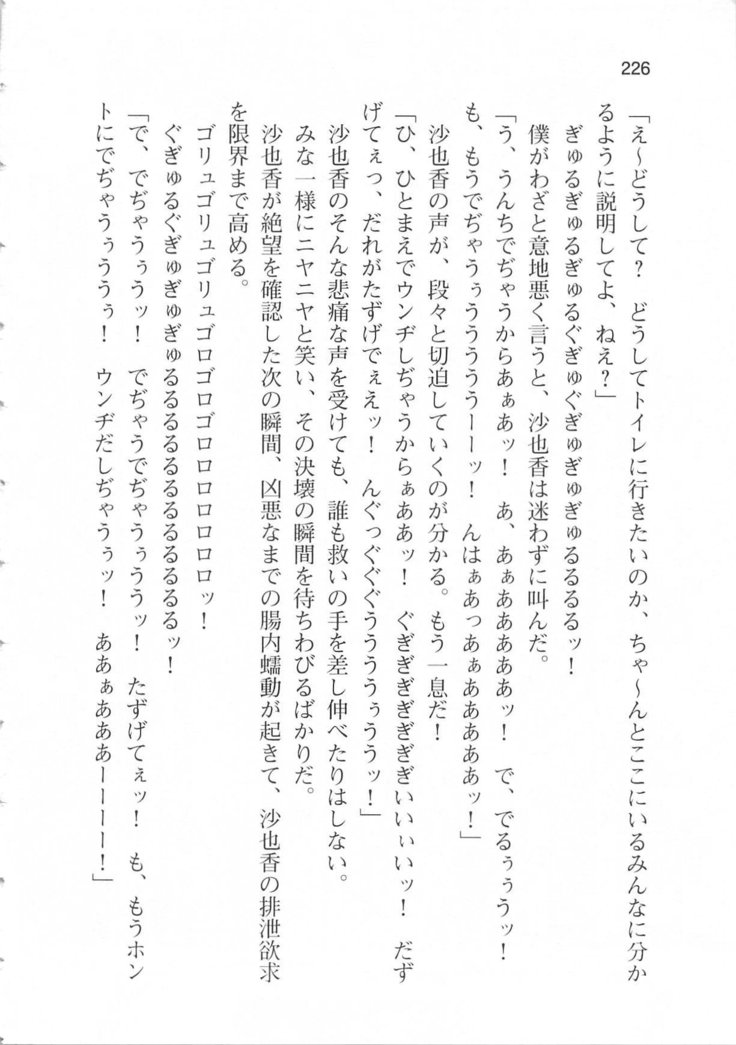 226
「え～どうして？　どうしてトイレに行きたいのか、ちゃ～んとここにいるみんなに分か
るように説明してよ、ねえ？」
ぎゅるぎゅるぎゅるぐぎゅぐぎゅぎゅぎゅるるるるッ！
僕がわざと意地悪く言うと、沙也香は迷わずに叫んだ。
「う、うんちでぢゃうからあぁあッ！　あ、あぁああああぁッ！　で、でるぅぅうッ！
も、もうでぢゃうぅうううううーーッ！　んはぁあっあぁああああぁッ！」
沙也香の声が、段々と切迫していくのが分かる。もう一息だ！
「ひ、ひとまえでウンヂしぢゃうからぁああッ！　ぐぎぎぎぎぎぎいいぃいッ！　だず
げてぇっ、だれがたずげでぇえッ！　んぐっぐぐぐうううぅううッ！」
沙也香のそんな悲痛な声を受けても、誰も救いの手を差し伸べたりはしない。
みな一様にニヤニヤと笑い、その決壊の瞬間を待ちわびるばかりだ。
沙也香が絶望を確認した次の瞬間、凶悪なまでの腸内蠕動が起きて、沙也香の排泄欲求
を限界まで高める。
ゴリュゴリュゴリュゴロゴロゴロロロロロロロッ！
ぐぎゅるぐぎゅぎゅぎゅるるるるるるるるるるるッ！
「で、でぢゃうぅうッ！　でぢゃうでぢゃうぅううッ！　たずげてぇッ！　も、もうホン
トにでぢゃうぅううぅ！　ウンヂだしぢゃうぅッ！　ああぁあああーーーー！」